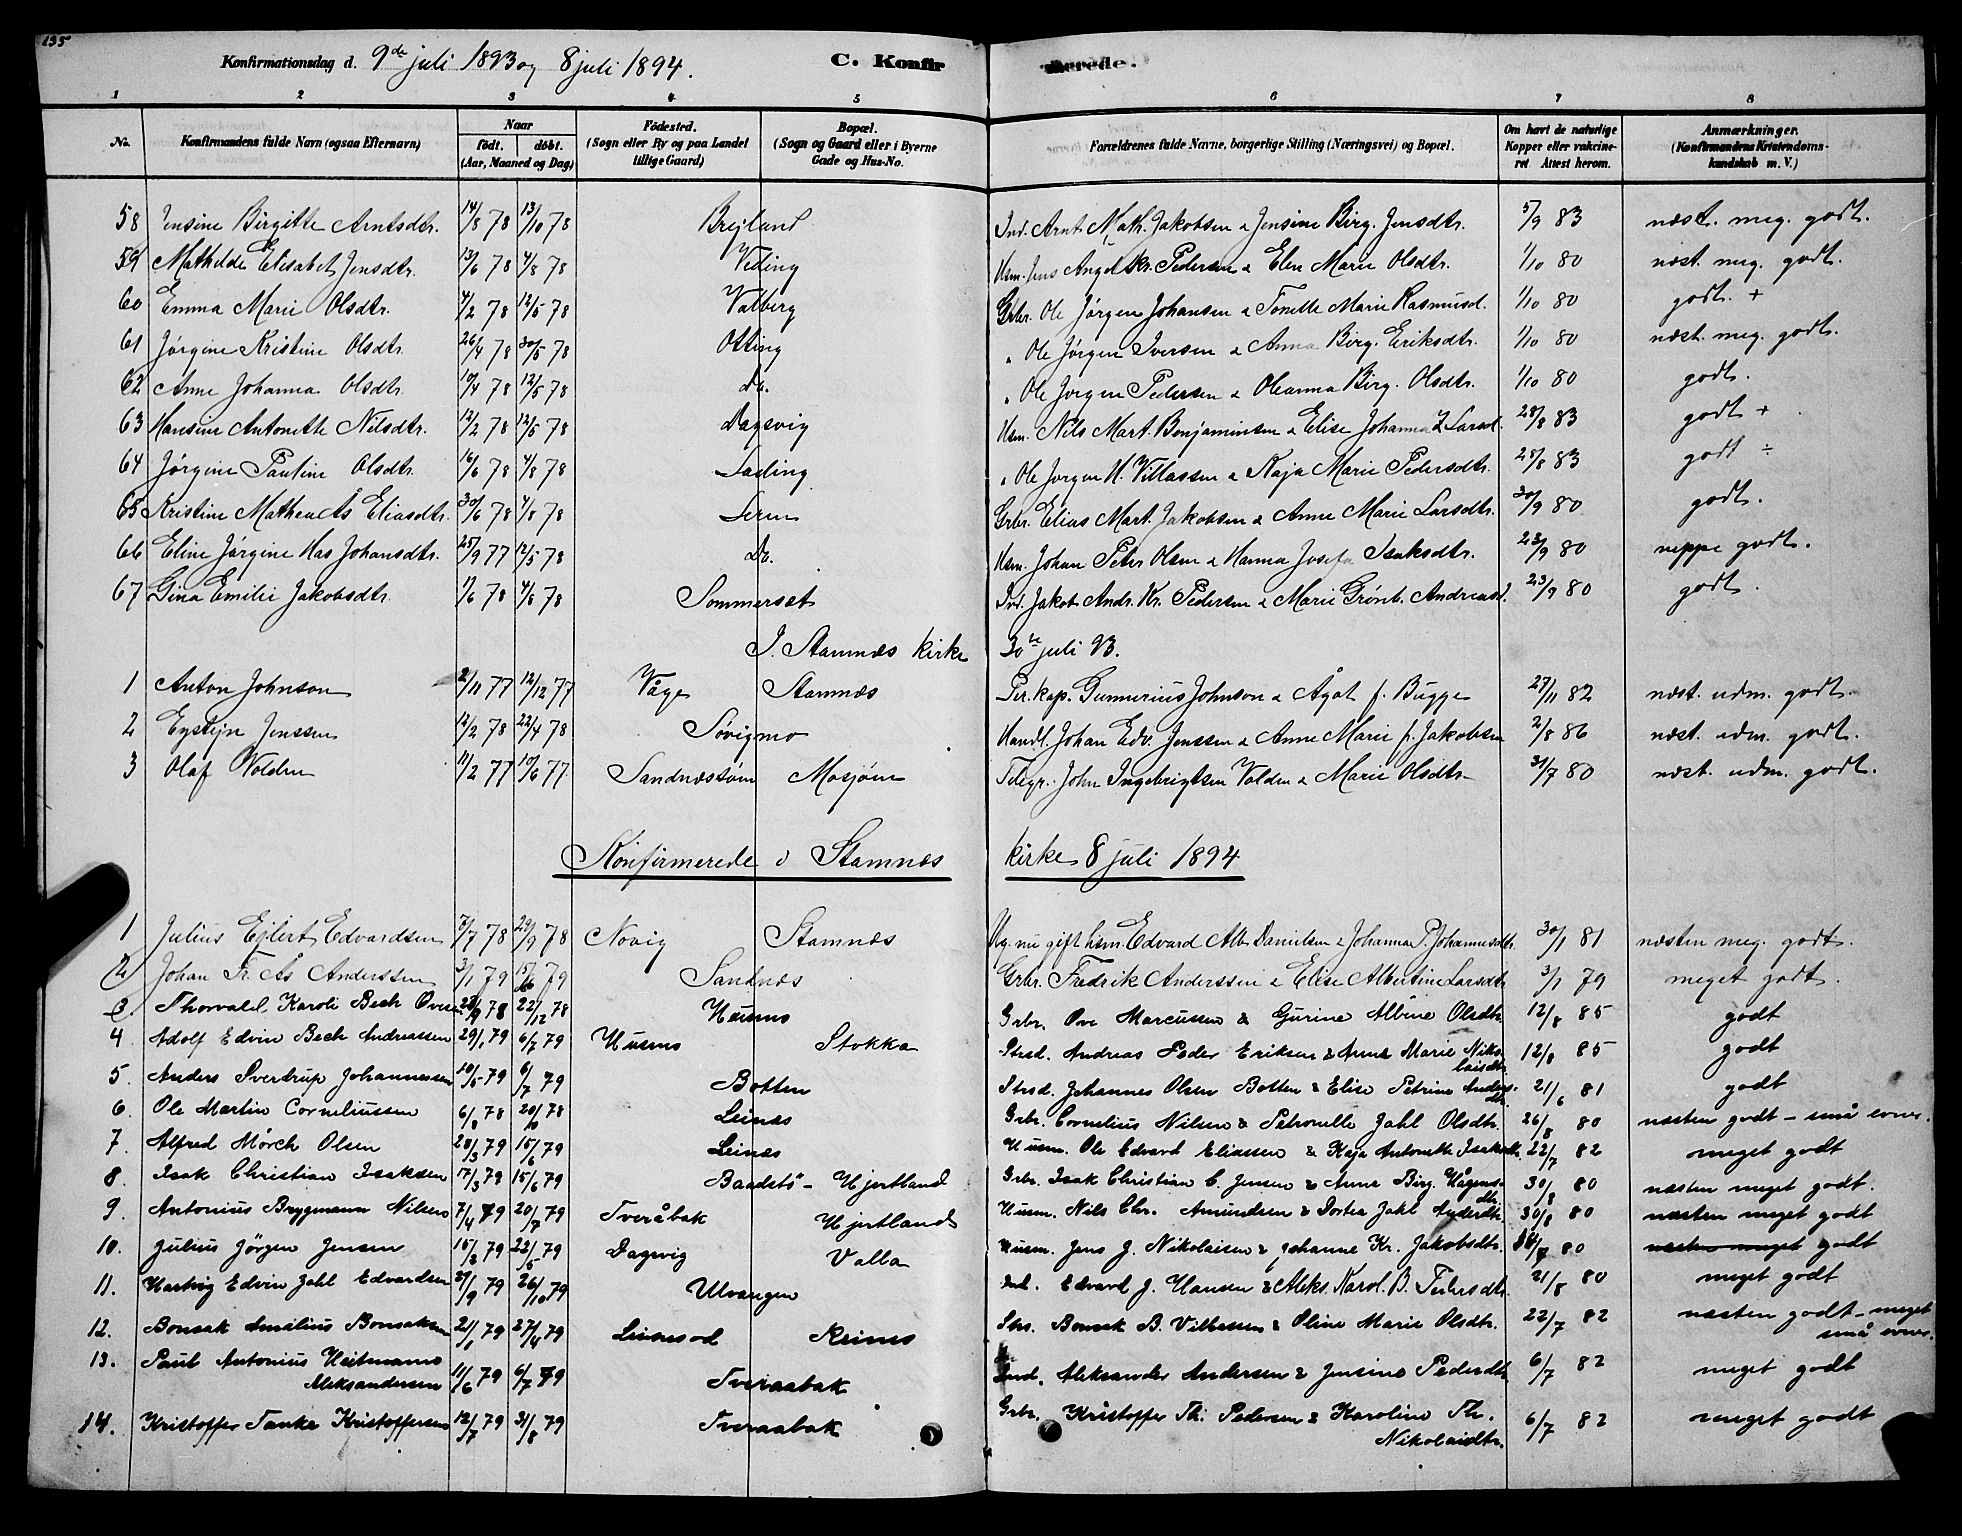 135
Konfirmationsdag d. 9de juli 1893 og 8 juli 1894. C. Konfirmerede.
1 2 3 4 5 6 7 8
No. Konfirmandens fulde Navn (ogsaa Efternavn) Naar født. døbt. (Aar, Maaned og Dag) Fødested. (Sogn eller By og paa Landet tillige Gaard) Bopæl. (Sogn og Gaard eller i Byerne Gade og Hus-No. Forældrenes fulde Navne, borgerlige Stilling (Næringsvei) og Bopæl. Om havt de naturlige Kopper eller vakcineret Attest herom. Anmærkninger. (Konfirmandens Kristendomskundskab m. V.)
58 Jensine Birgitte Arntsdtr. 14/8 78 13/10 78 Brejland Ind. Arnt Math. Jakobsen & Jensine Birg. Jensdtr. 5/9 83 næst. meg. godt.
59 Mathilde Elisabet Jensdtr. 13/6 78 4/8 78 Veding Hsm. Jens Angel Kr. Pedersen & Elen Marie Olsdtr. 1/10 80 næst. meg. godt.
60 Emma Marie Olsdtr. 4/2 78 12/5 78 Valberg Grbr. Ole Jørgen Johansen & Tonette Marie Rasmusd. 1/10 80 godt. +
61 Jørgine Kristine Olsdtr. 26/4 78 30/5 78 Otting " Ole Jørgen Iversen & Anna Birg. Eriksdtr. 1/10 80 næst. meg. godt.
62 Anne Johanna Olsdtr. 10/4 78 12/5 78 do. " Ole Jørgen Pedersen & Oleanna Birg. Olsdtr. 1/10 80 godt.
63 Hansine Antonette Nilsdtr. 12/2 78 12/5 78 Dagsvig Hsm. Nils Mart. Benjaminsen & Elise Johanna Larsd. 28/8 83 godt +
64 Jørgine Pauline Olsdtr. 16/6 78 4/8 78 Lading " Ole Jørgen H. Villassen & Kaja Marie Pedersdtr. 28/8 83 godt ÷
65 Kristine Mathea Eliasdtr. 30/6 78 4/8 78 Leren Grbr. Elias Mart. Jakobsen & Anne Marie Larsdtr. 30/9 80 godt.
66 Eline Jørgine Has Johansdtr. 25/9 77 12/5 78 Do. Hsm. Johan Peter Olsen & Hanna Josefa Isaksdtr. 23/9 80 neppe godt.
67 Gina Emilie Jakobsdtr. 11/6 78 4/8 78 Sommerset Ind. Jakob Andr. Kr. Pedersen & Marie Grønb. Andreasd. 23/9 80 godt.
I. Stamnæs kirke 30te juli 93.
1 Anton Johnson 2/11 77 12/12 77 Våge Stamnæs Per. kap. Gunnerius Johnson & Ågot f. Bugge 27/11 82 næst. udm. godt.
2 Eystejn Jenssen 12/2 78 22/4 78 Søvigmo Handl. Johan Edv. Jenssen & Anne Marie f. Jakobsen 2/8 86 næst. udm. godt.
3 Olaf Volden 11/2 77 10/6 77 Sandnæssøen Mosjøen Telegr. John Ingebrigtsen Volden & Marie Olsdtr 31/7 80 næst. udm. godt.
Konfirmerede i Stamnæs kirke 8 juli 1894
1 Julius Ejlert Edvardsen 7/7 78 29/9 78 Novig Stamnæs Ug. nu gift hsm. Edvard Alb. Danielsen & Johanna P. Johannesdtr. 30/1 81 næsten meg. godt.
2 Johan Fr. Anderssen 3/1 79 15/6 79 Sandnæs Grbr. Fredrik Anderssen & Elise Albertine Larsdtr 3/7 79 meget godt.
3. Thorvald Karoli Bech Ovesen 28/9 78 22/12 78 Husmo Grbr. Ove Marcussen & Gurine Albine Olsdtr. 12/8 85 godt
4. Adolf Edvin Bech Andreassen 29/1 79 6/7 79 Husmo Stokka Strsd. Andreas Peder Eriksen & Anne Marie Nikolaisdtr 12/8 85 godt
5. Anders Sverdrup Johannessen 10/5 79 6/7 79 Botten Strsd. Johannes Olsen Botten & Elise Petrine Andersdtr. 21/6 81 godt
6. Ole Martin Corneliussen 6/8 78 20/10 78 Leinæs Grbr. Cornelius Nilsen & Petronelle Jahl Olsdtr. 26/8 80 næsten godt – små evner.
7. Alfred Mörch Olsen 28/3 79 15/6 79 Leinæs Husm. Ole Edvard Eliassen & Kaja Antonette Isaksdtr. 22/7 82 meget godt
8. Isak Christian Isaksen 17/3 79 15/6 79 Baadstö – Hjertland Grbr. Isak Christian C. Jensen & Anne Birg. Hågensdtr. 30/8 80 næsten meget godt.
9. Antonius Brygmann Nilsen 7/4 79 20/7 79 Tveråbak Hjertland Husm. Nils Chr. Amundsen & Dortea Jahl Andersdtr. 30/8 80 næsten meget godt
10. Julius Jörgen Jensen 15/2 79 22/5 79 Dagsvig Valla Husm. Jens J. Nikolaisen & Johanne Kr. Jakobsdtr. 80 næsten meget godt
11. Hartvig Edvin Jahl Edvardsen 21/9 79 26/10 79 Ulvangen Ind. Edvard J. Hansen & Aleks. Karol. B. Pedersdtr. 21/8 80 meget godt
12. Bonsak Amilius Bonsaksen 21/1 79 27/4 79 Leinesod Reines Strs. Bonsak B. Villassen & Oline Marie Olsdtr. 22/7 82 næsten godt – meget små evner.
13. Paul Antonius Heitmanns Aleksandersen 11/6 79 6/7 79 Tveraabak Ind. Aleksander Andersen & Jensine Pedersdtr 6/7 82 meget godt
14. Kristoffer Tanke Kristoffersen 12/7 79 31/8 79 Tveraabak Grbr. Kristoffer Th. Pedersen & Karoline Th. Nikolaidtr. 6/7 82 meget godt